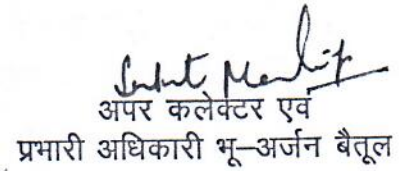 अपर कलेक्टर एवं
प्रभारी अधिकारी भू–अर्जन बैतूल